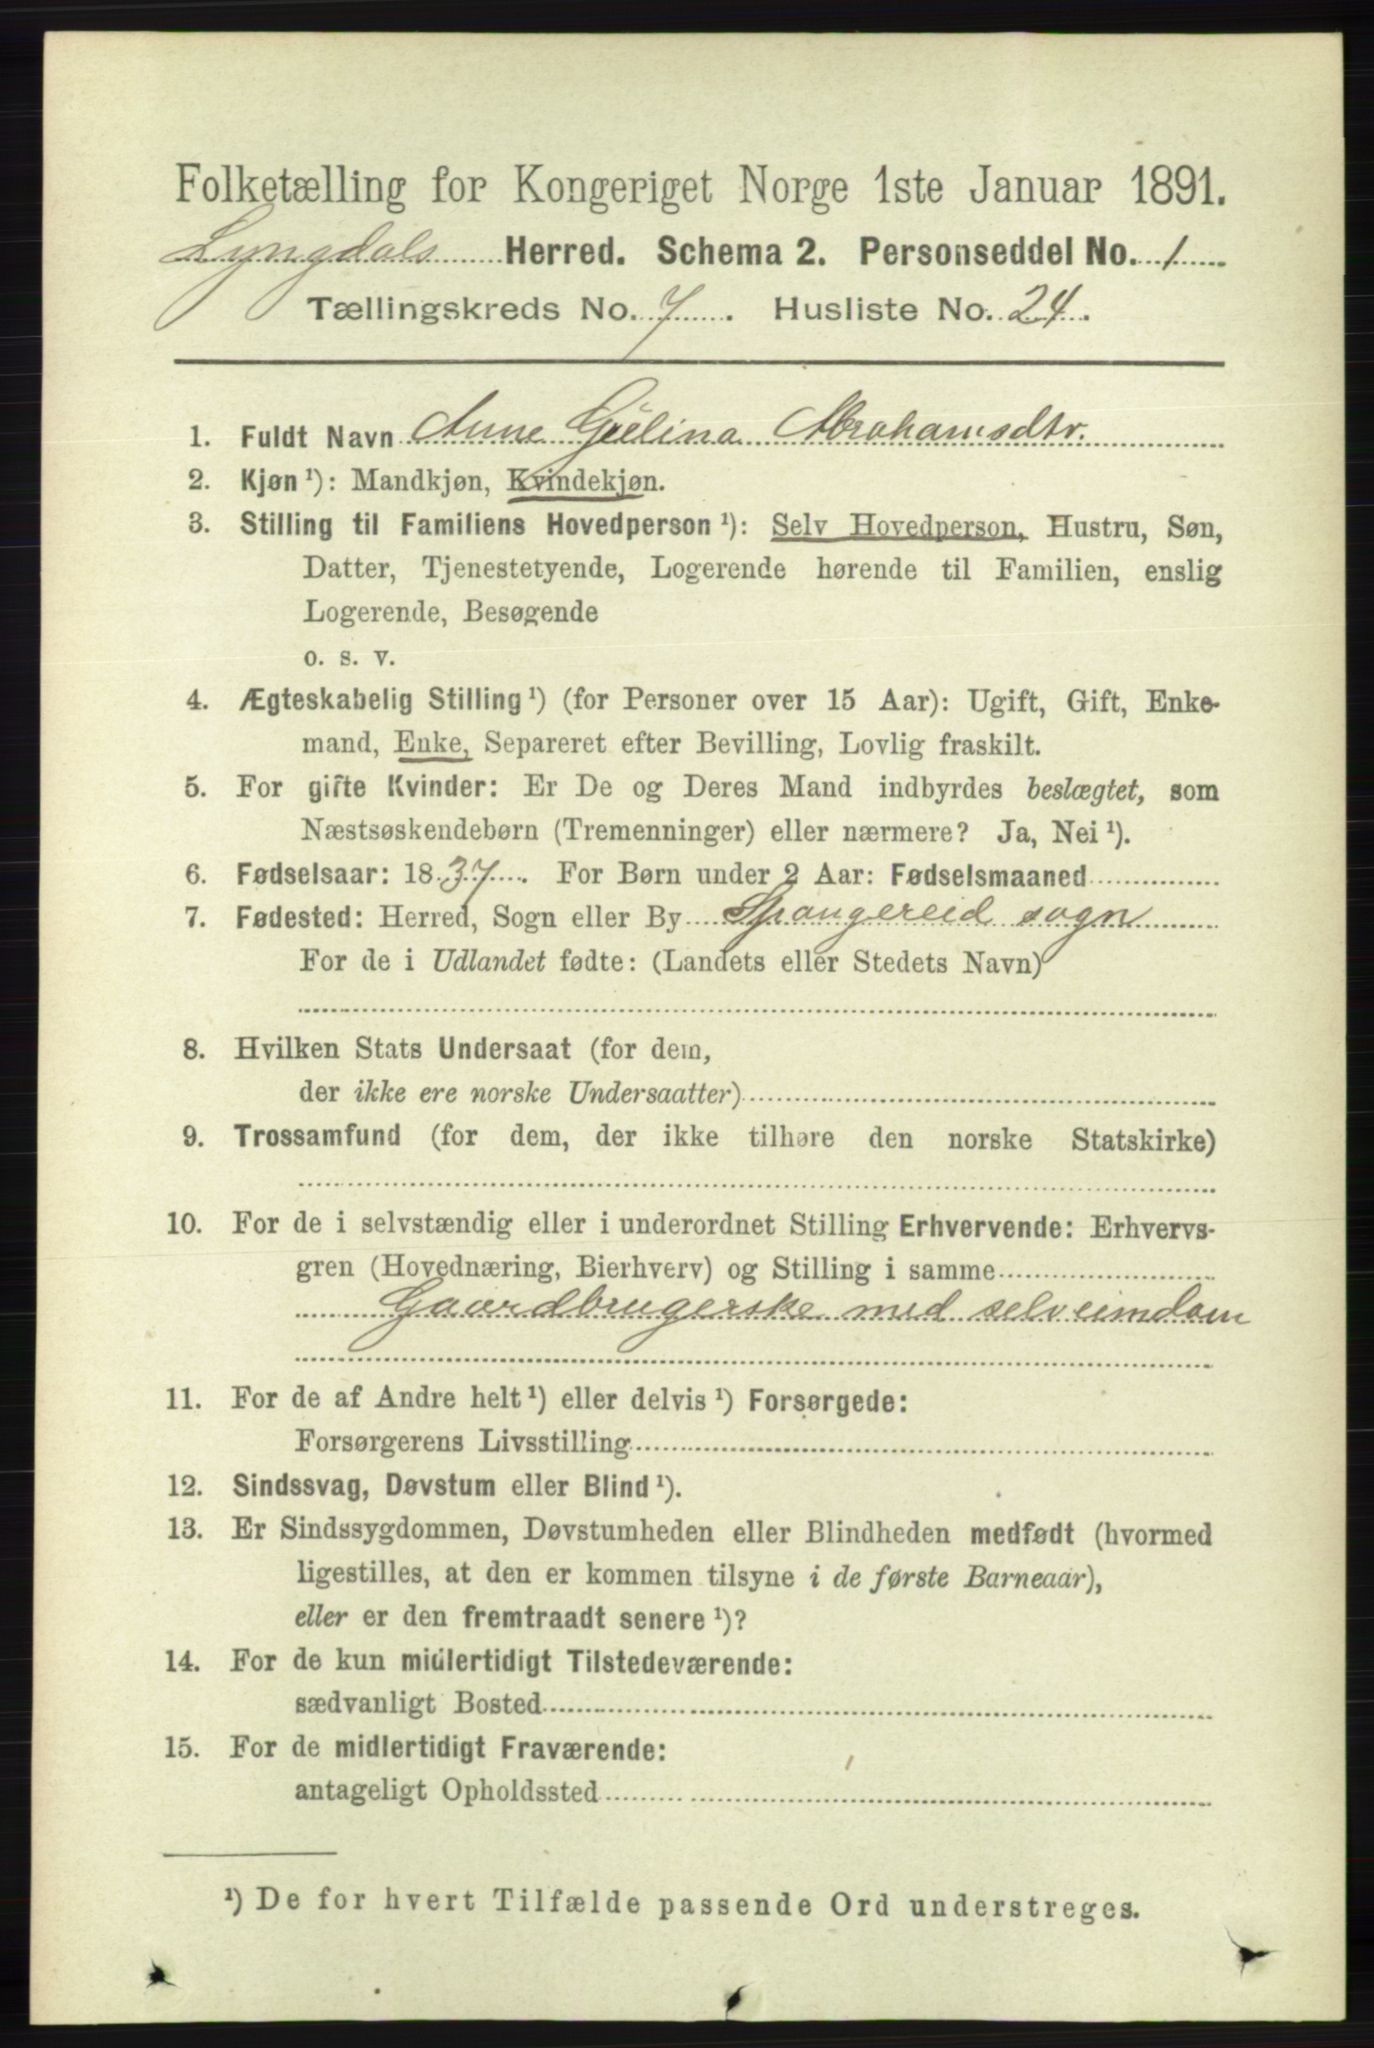 Folketælling for Kongeriget Norge 1ste Januar 1891.
Lyngdals Herred. Schema 2. Personseddel No. 1
Tællingskreds No. 7. Husliste No. 24.
1. Fuldt Navn Anne Gjelina Abrahamsdtr.
2. Kjøn ¹): Mandkjøn, Kvindekjøn.
3. Stilling til Familiens Hovedperson ¹): Selv Hovedperson, Hustru, Søn,
Datter, Tjenestetyende, Logerende hørende til Familien, enslig
Logerende, Besøgende
o. s. v.
4. Ægteskabelig Stilling ¹) (for Personer over 15 Aar): Ugift, Gift, Enke-
mand, Enke, Separeret efter Bevilling, Lovlig fraskilt.
5. For gifte Kvinder: Er De og Deres Mand indbyrdes beslægtet, som
Næstsøskendebørn (Tremenninger) eller nærmere? Ja, Nei ¹).
6. Fødselsaar: 1837. For Børn under 2 Aar: Fødselsmaaned
7. Fødested: Herred, Sogn eller By Spangereid sogn
For de i Udlandet fødte: (Landets eller Stedets Navn)
8. Hvilken Stats Undersaat (for dem,
der ikke ere norske Undersaatter)
9. Trossamfund (for dem, der ikke tilhøre den norske Statskirke)
10. For de i selvstændig eller i underordnet Stilling Erhvervende: Erhvervs-
gren (Hovednæring, Bierhverv) og Stilling i samme
Gaardbrugerske med selveiendom
11. For de af Andre helt ¹) eller delvis ¹) Forsørgede:
Forsørgerens Livsstilling
12. Sindssvag, Døvstum eller Blind ¹).
13. Er Sindssygdommen, Døvstumheden eller Blindheden medfødt (hvormed
ligestilles, at den er kommen tilsyne i de første Barneaar),
eller er den fremtraadt senere ¹)?
14. For de kun midlertidigt Tilstedeværende:
sædvanligt Bosted
15. For de midlertidigt Fraværende:
antageligt Opholdssted
¹) De for hvert Tilfælde passende Ord understreges.